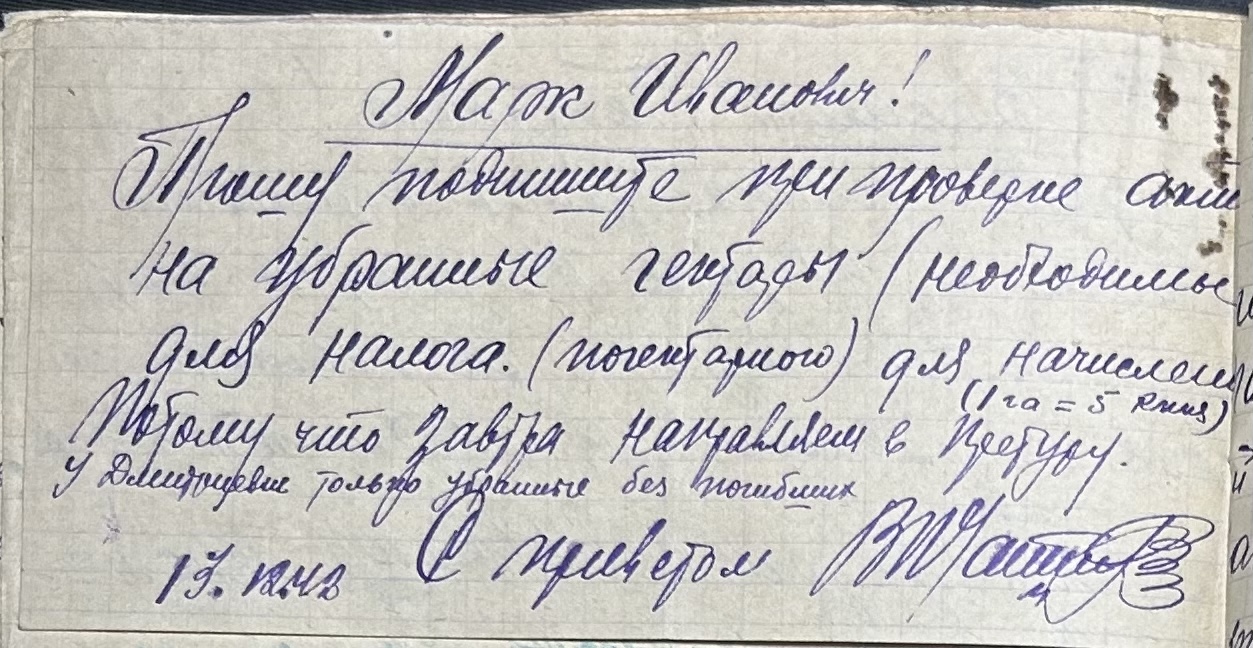 Марк Иванович!
Прошу подпишите при проверке
на убранные гектары (необходимые
для налога. (погектарного) для начислен
(1 га = 5
Потому что завтра направляем в претуру.
У только убранные без погибших
С приветом